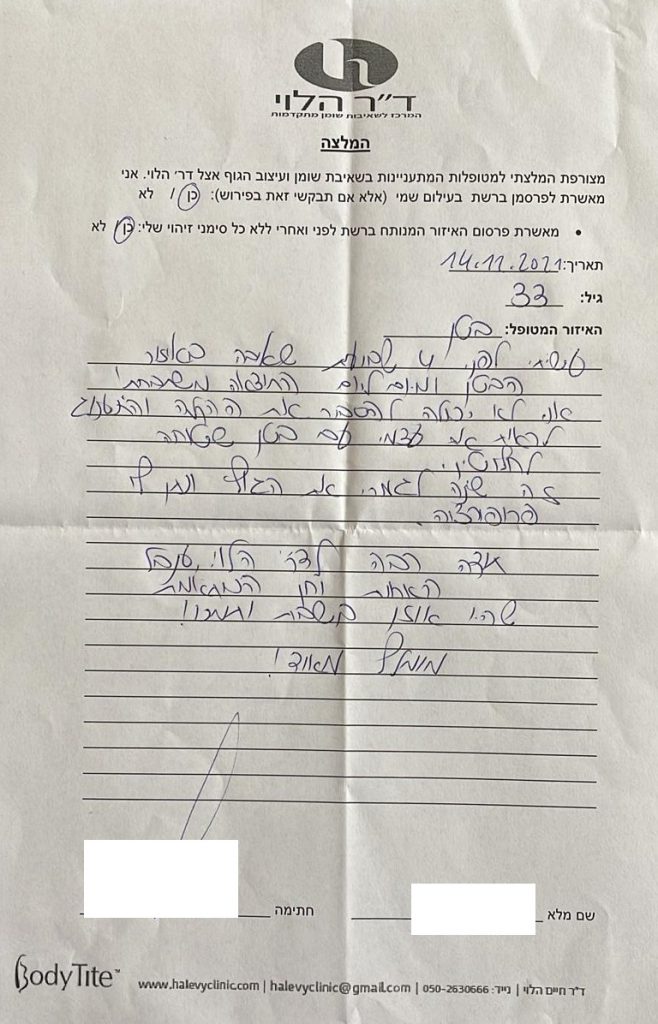 ד״ר הלוי
המרכז לשאיבות שומן מתקדמות
המלצה
מצורפת המלצתי למטופלות המתעניינות בשאיבת שומן ועיצוב הגוף אצל דר׳ הלוי. אני
מאשרת לפרסמן ברשת בעילום שמי (אלא אם תבקשי זאת בפירוש): כן / לא
• מאשרת פרסום האיזור המנותח ברשת לפני ואחרי ללא כל סימני זיהוי שלי: כן/ לא
תאריך: 14.11.2021
גיל: 33
האיזור המטופל: בטן
עשיתי לפני 4 שבועות שאיבה באזור
הבטן ומיום ליום התוצאה משתבחת!
אני לא יכולה להסביר את ההקלה והתענוג
לראות את עצמי עם בטן שטוחה
לחלוטין.
זה שינה לגמרי את הגוף ונתן לי
פרופורציה.
תודה רבה לדר׳ הלוי, ענבל
האחות וחן המתאמת
שהיו אוזן קשבת ותמכו!
מומלץ מאוד!
שם מלא
חתימה
BodyTite™
www.halevyclinic.com | halevyclinic@gmail.com | ד״ר חיים הלוי | נייד: 050-2630666